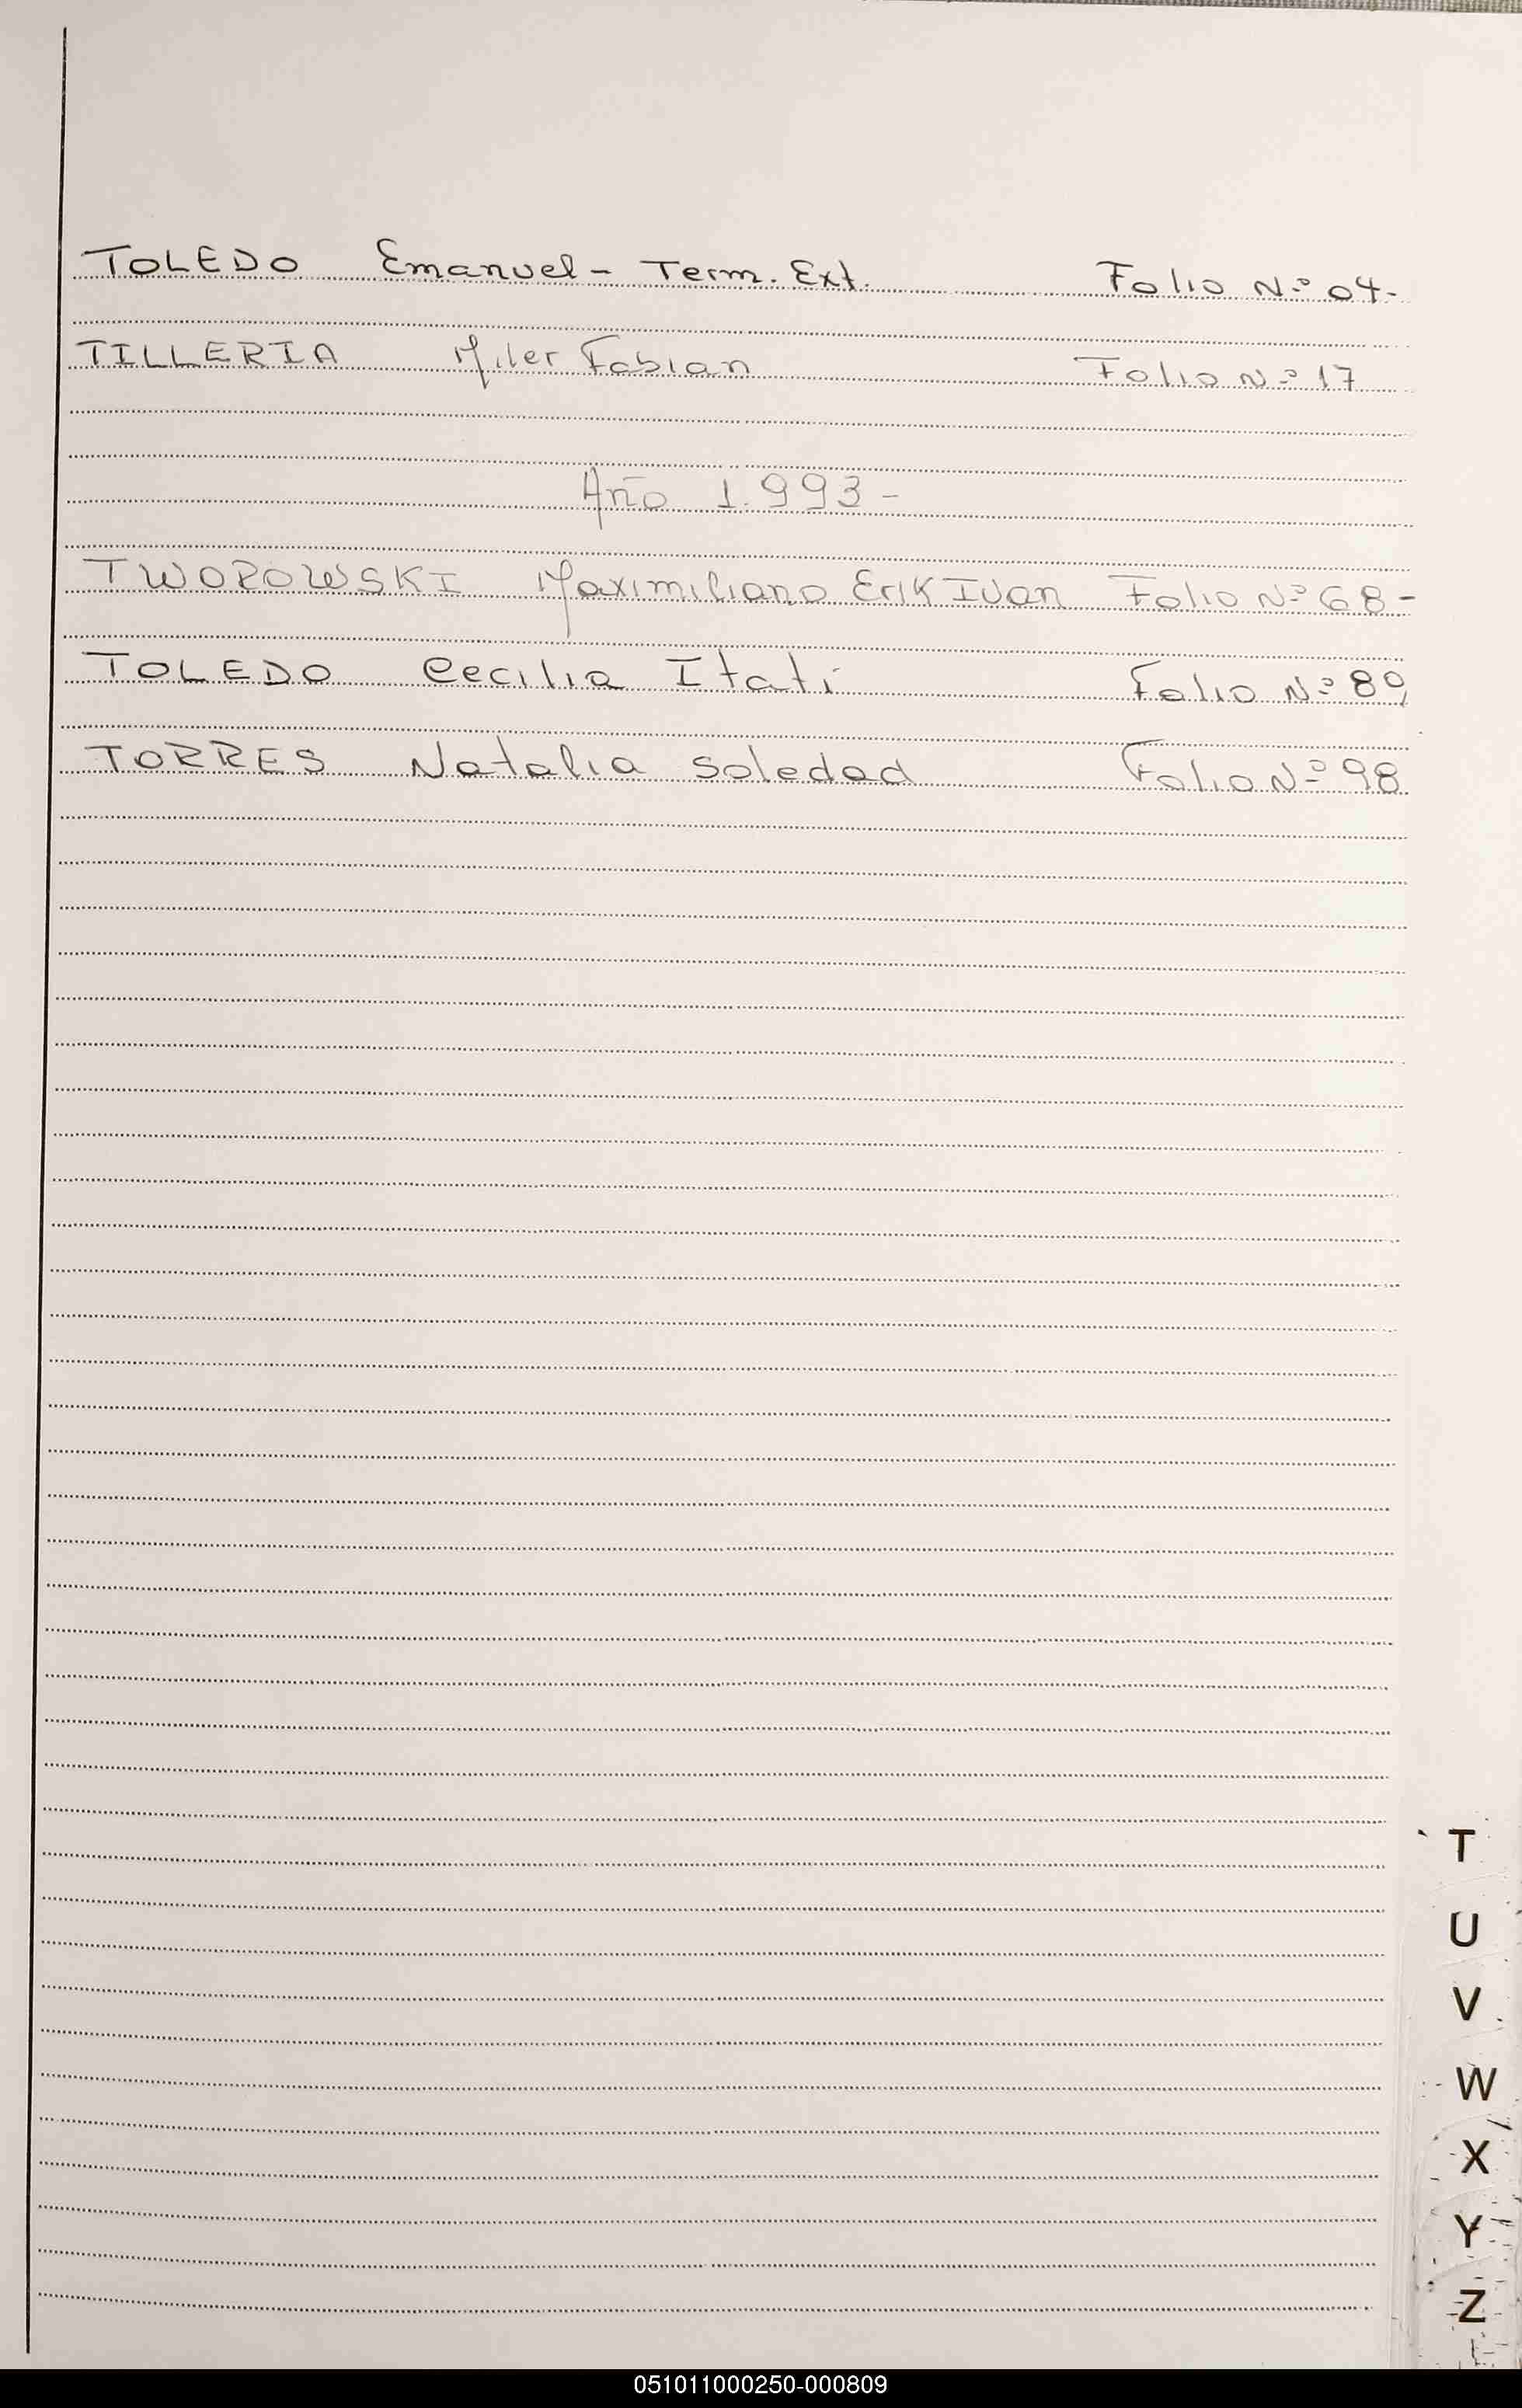 TOLEDO Emanuel - Term. Ext. Folio Nº 04-
TILLERIA Miler Fabian Folio Nº 17
Año 1.993-
TWOROWSKI Maximiliano Erik Ivan Folio Nº 68-
TOLEDO Cecilia Itatí Folio Nº 89
TORRES Natalia Soledad Folio Nº 98
T
U
V
W
X
Y
Z
051011000250-000809